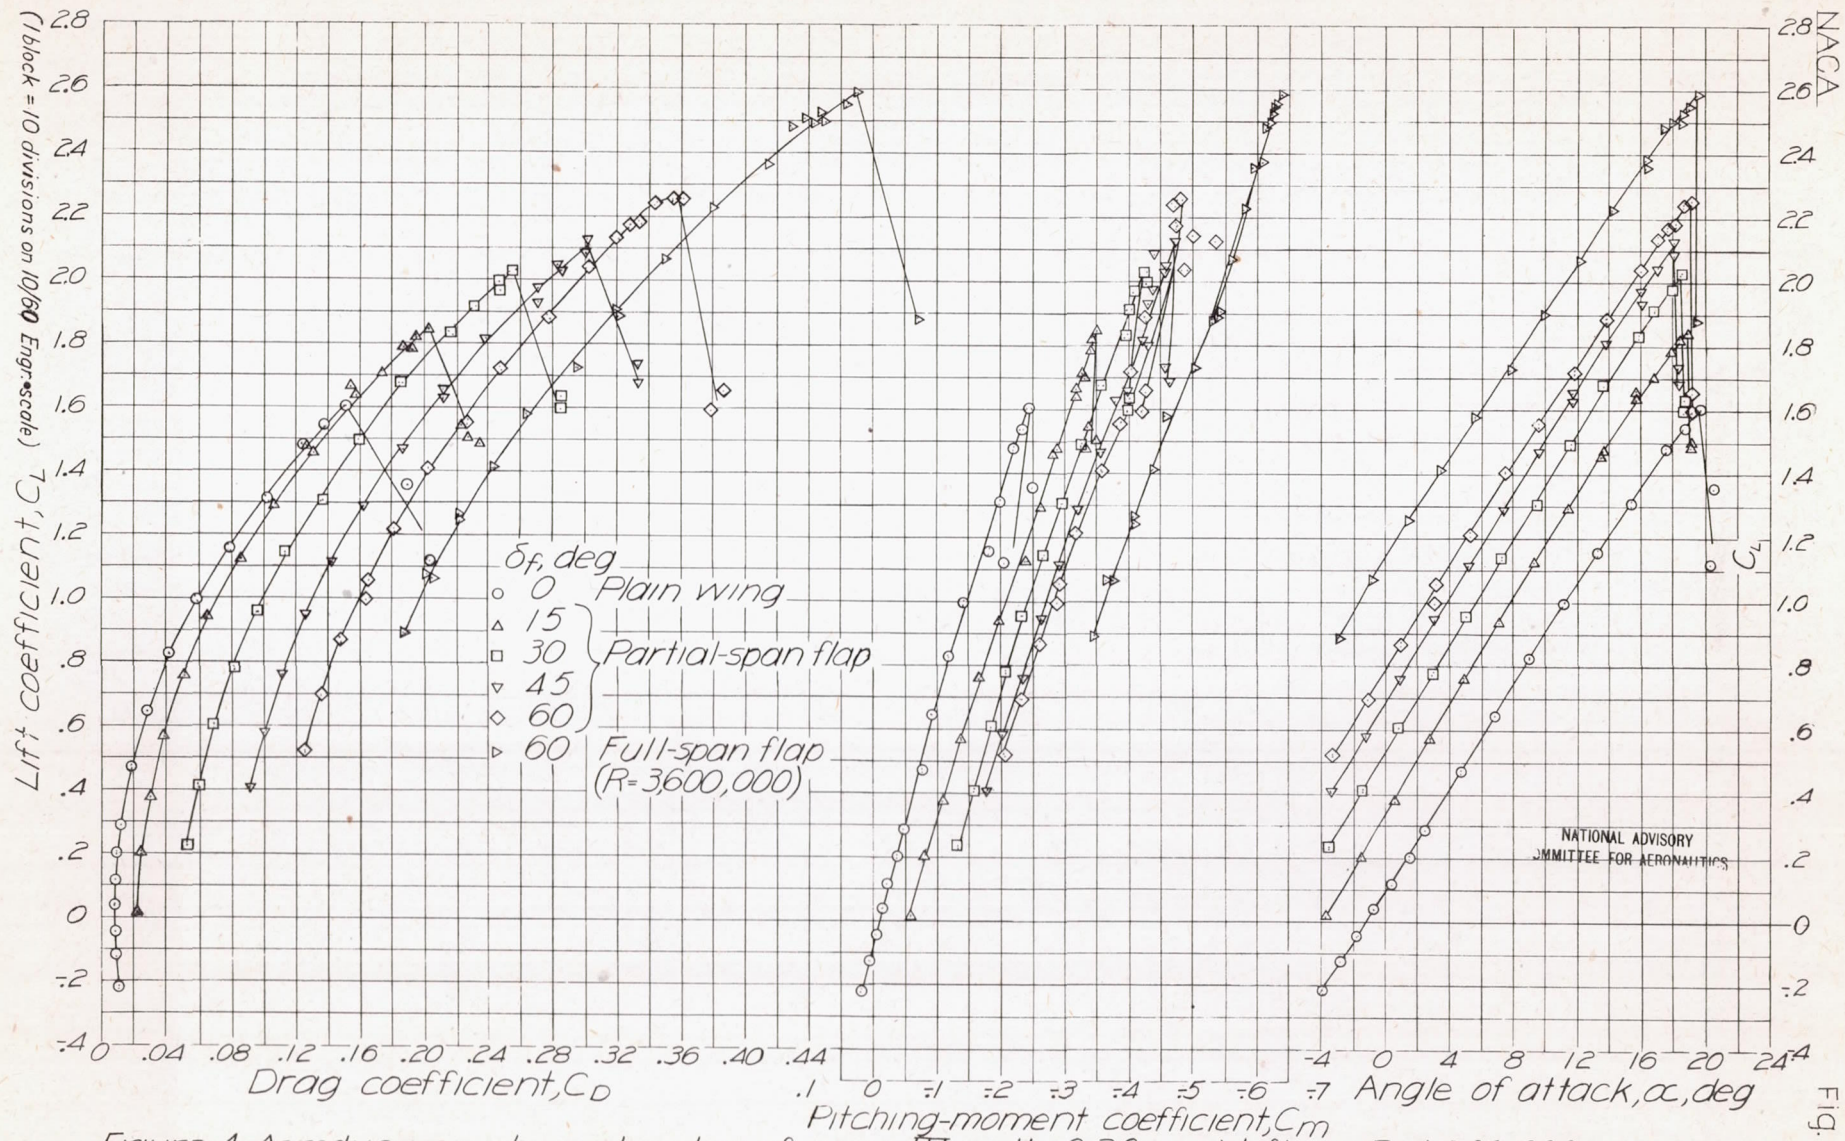 NACA
(1 block = 10 divisions on 10/60 Engr. scale)
Lift coefficient, CL
2.8
2.6
2.4
2.2
2.0
1.8
1.6
1.4
1.2
1.0
.8
.6
.4
.2
0
-.2
-.4
δf, deg
0 Plain wing
15
30 Partial-span flap
45
60
60 Full-span flap
(R=3,600,000)
0 .04 .08 .12 .16 .20 .24 .28 .32 .36 .40 .44
Drag coefficient, CD
.1 0 -.1 -.2 -.3 -.4 -.5 -.6 -.7
Pitching-moment coefficient, Cm
-4 0 4 8 12 16 20 24
Angle of attack, α, deg
2.8
2.6
2.4
2.2
2.0
1.8
1.6
1.4
1.2
CL
1.0
.8
.6
.4
.2
0
-.2
-.4
NATIONAL ADVISORY
OMMITTEE FOR AERONAUTICS
Fig.